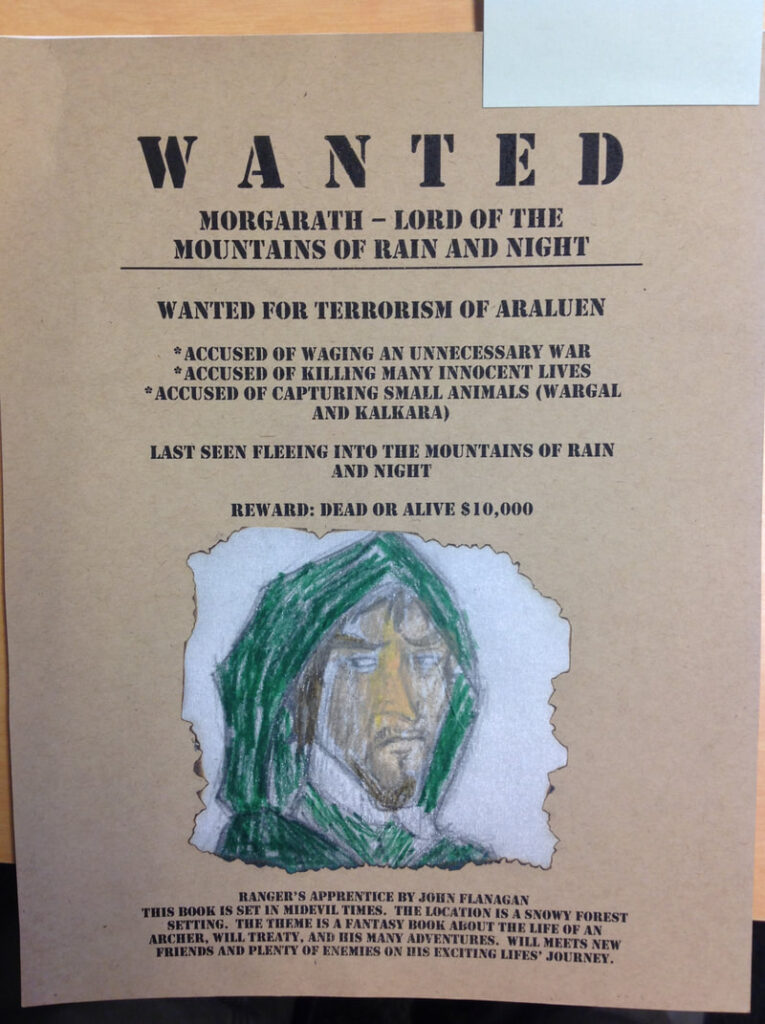 WANTED
MORGARATH – LORD OF THE
MOUNTAINS OF RAIN AND NIGHT
WANTED FOR TERRORISM OF ARALUEN
*ACCUSED OF WAGING AN UNNECESSARY WAR
*ACCUSED OF KILLING MANY INNOCENT LIVES
*ACCUSED OF CAPTURING SMALL ANIMALS (WARGAL
AND KALKARA)
LAST SEEN FLEEING INTO THE MOUNTAINS OF RAIN
AND NIGHT
REWARD: DEAD OR ALIVE $10,000
RANGER'S APPRENTICE BY JOHN FLANAGAN
THIS BOOK IS SET IN MIDEVIL TIMES. THE LOCATION IS A SNOWY FOREST
SETTING. THE THEME IS A FANTASY BOOK ABOUT THE LIFE OF AN
ARCHER, WILL TREATY, AND HIS MANY ADVENTURES. WILL MEETS NEW
FRIENDS AND PLENTY OF ENEMIES ON HIS EXCITING LIFES' JOURNEY.